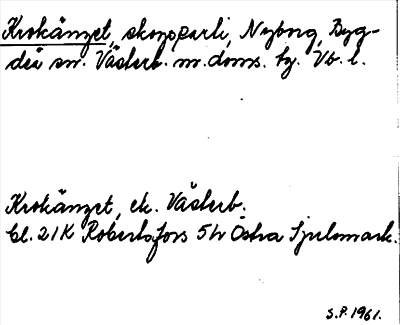 Krokänget, skogsparti, Nyborg, Byg-
deå sn. Västerb. m. doms. hg. Vb. l.
Krokänget, ek. Västerb.
bl. 21K Robertsfors 5h Östra Sjulsmark.
S.P. 1961.